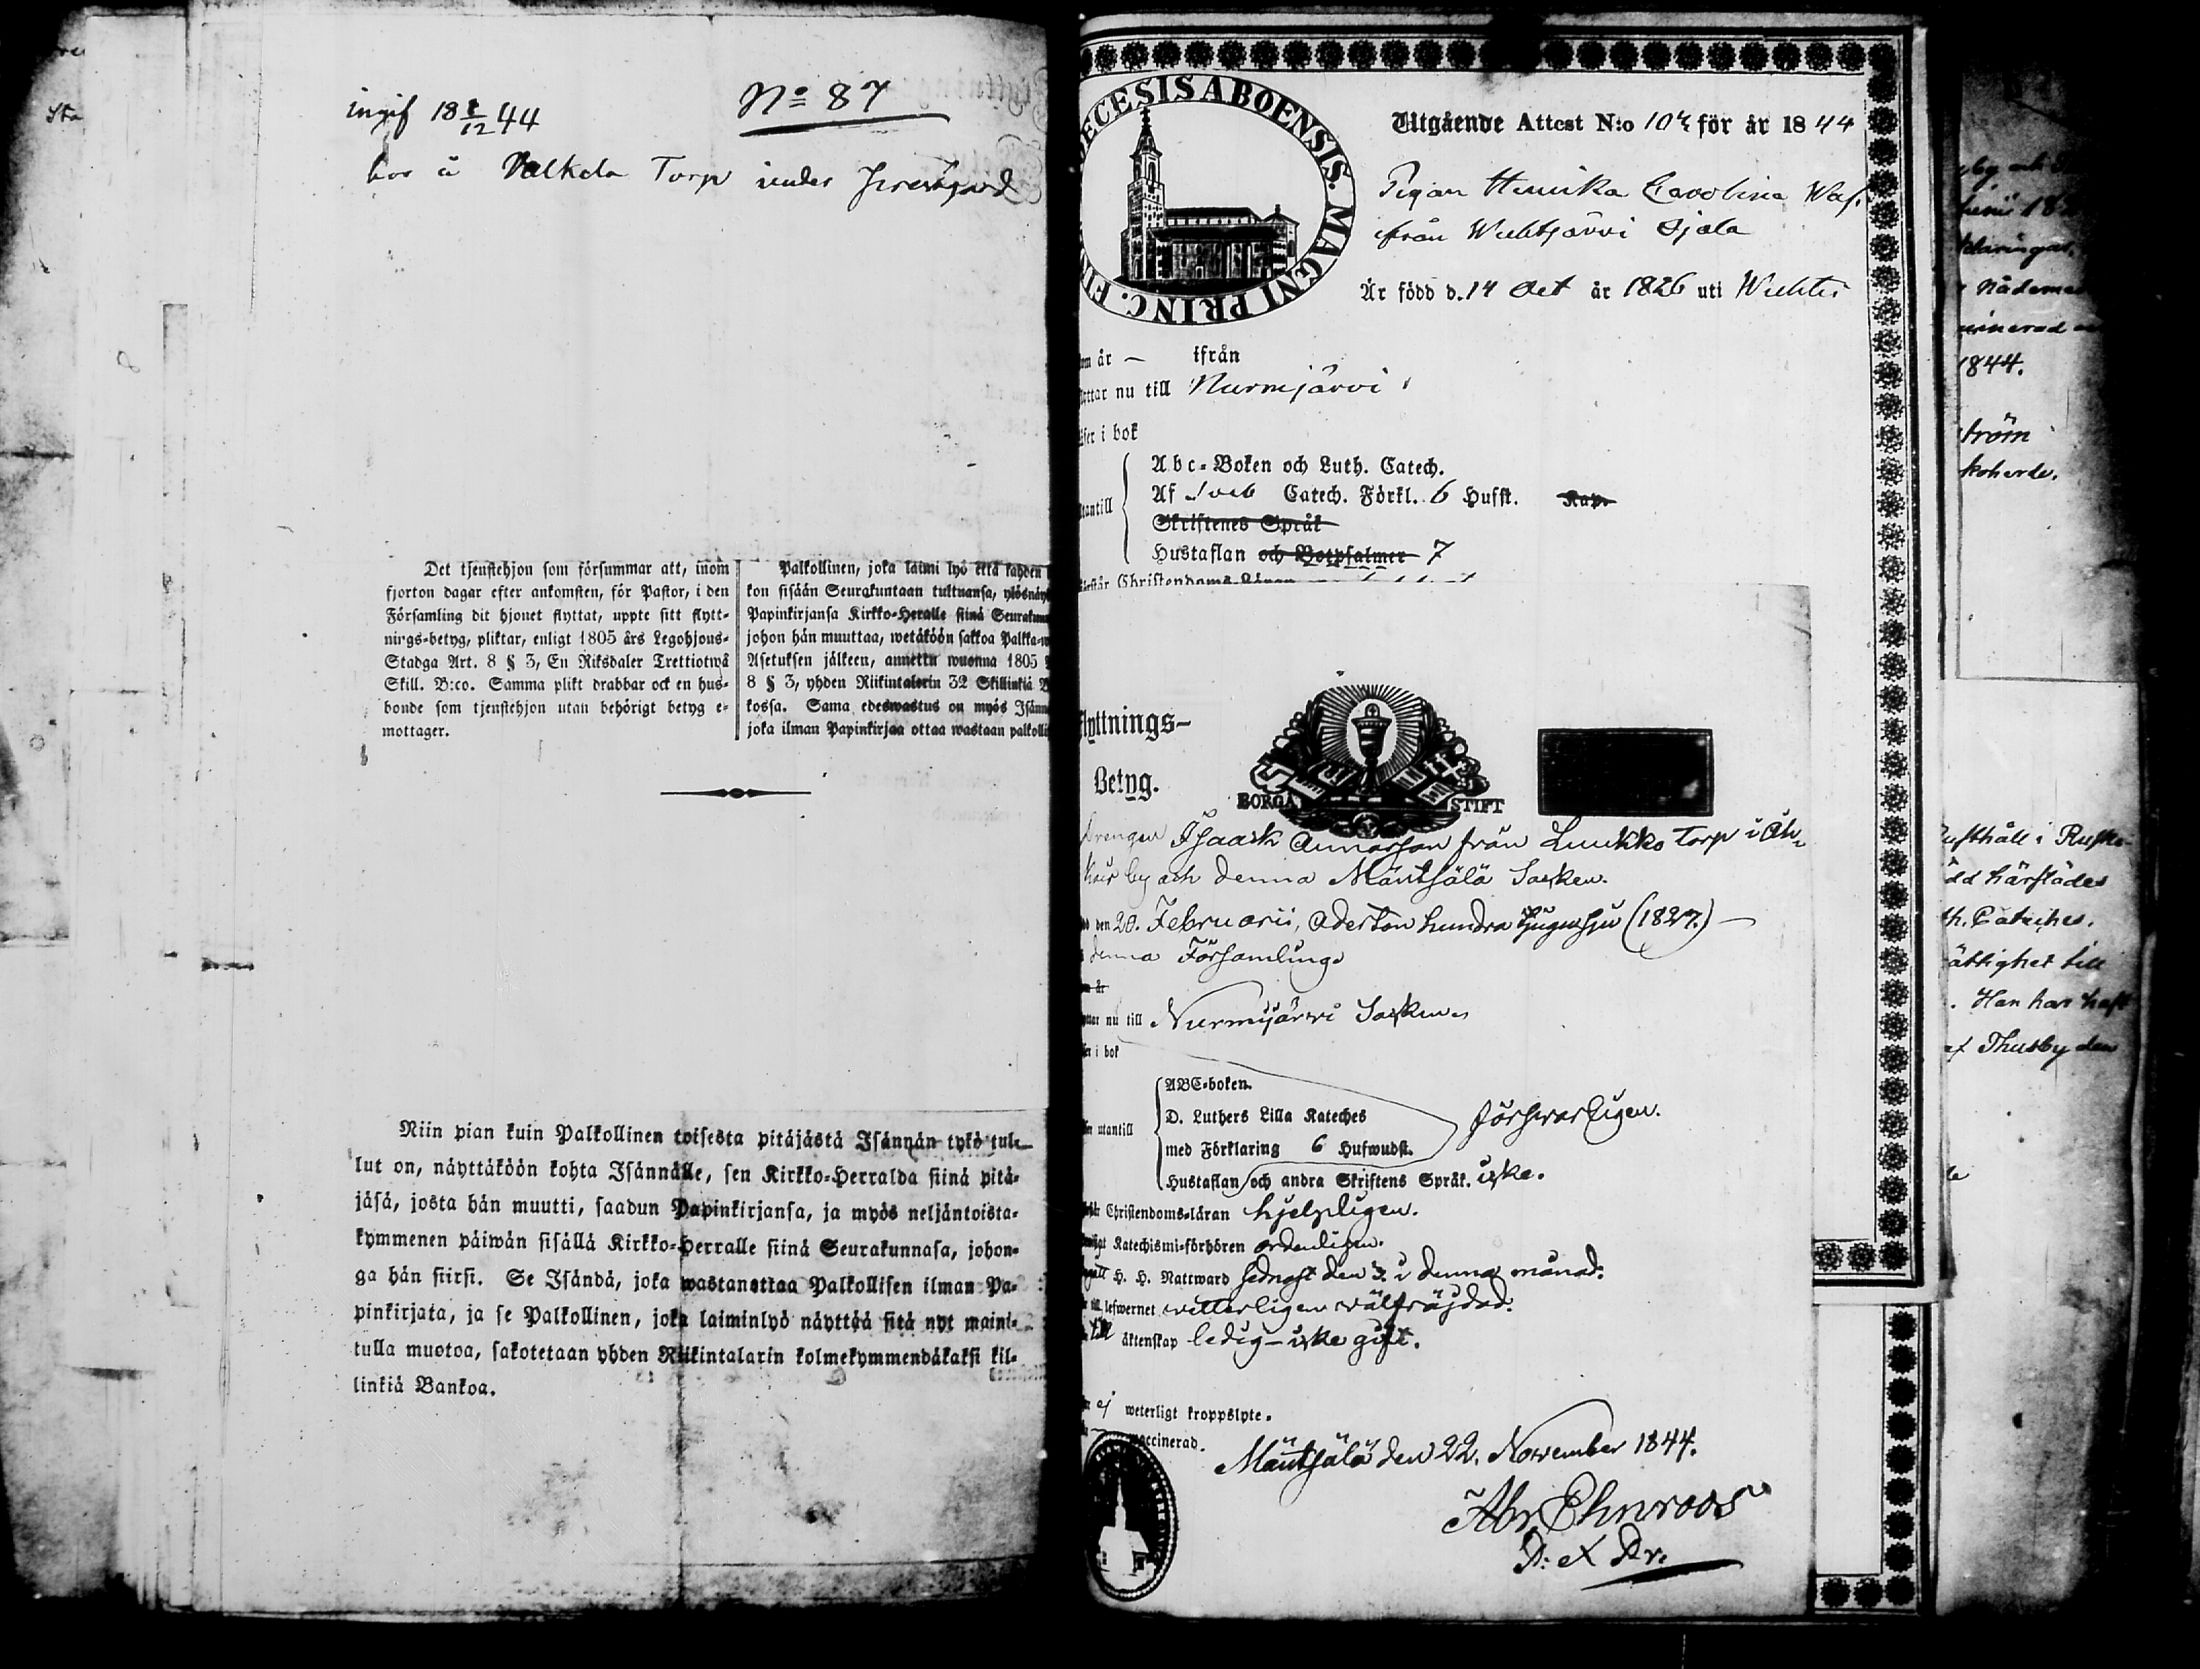 ingif 18 8/12 44
No 87
hos å Torp under
Det tjenstehjon som försummar att, inom
fjorton dagar efter ankomsten, för Pastor, i den
Församling dit hjonet flyttat, uppte sitt flytt-
nings-betyg, pliktar, enligt 1805 års Legohjons-
Stadga Art. 8 § 3, En Riksdaler Trettiotwå
Skill. B:co. Samma plikt drabbar ock en hus-
bonde som tjenstehjon utan behörigt betyg e-
mottager.
Palkollinen, joka laimi lyö että kahden
kon sisään Seurakuntaan tultuansa, ylösnäy
Papinkirjansa Kirkko-Heralle siinä Seurakun
johon hän muuttaa, wetäköön sakkoa Palkka-
Asetuksen jälkeen, annettu wuonna 1805
8 § 3, yhden Riikintalerin 32 Skillinkiä B
kossa. Sama edeswastus on myös Isänn
joka ilman Papinkirjaa ottaa wastaan palkolli
Niin pian kuin Palkollinen toisesta pitäjästä Isännän tykö tul-
lut on, näyttäköön kohta Isännälle, sen Kirkko-Herralda siinä pitä-
jäsä, josta hän muutti, saadun Papinkirjansa, ja myös neljäntoista-
kymmenen päiwän sisällä Kirkko-Herralle siinä Seurakunnasa, johon-
ga hän siirsi. Se Isändä, joka wastanottaa Palkollisen ilman Pa-
pinkirjata, ja se Palkollinen, joka laiminlyö näyttää sitä nyt maini-
tulla muotoa, sakotetaan yhden Riikintalarin kolmekymmendäkaksi kil-
linkiä Bankoa.
ECESIS ABOENSIS. MAGNI PRINC. FIN
Utgående Attest N:o 102 för år 1844
Pigan Henrika Carolina
från Wichtjärvi Ojala
Är född d. 14 Oct år 1826 uti Wichtis
om år — ifrån
yttar nu till Nurmijärvi
äser i bok
Abc-Boken och Luth. Catech.
Af Sveb Catech. Förkl. 6 Hufst. Kap.
utantill
Skriftenes Språk
Hustaflan och Botpsalmer 7
örstår Christendoms-Läran
Flyttnings-
Betyg.
BORGÅ STIFT
Drengen Isaack Annasson från Luukko torp i Oh-
by och denna Mäntsälä Socken.
dd den 20. Februarii, Aderton hundra tjugusju (1827.) —
i denna Församling
om år
yttar nu till Nurmijärvi Socken
ser i bok
ABC-boken.
D. Luthers Lilla Kateches
ser utantill
med Förklaring 6 Hufwudst.
försvarligen.
Hustaflan och andra Skriftens Språk. icke.
Christendoms-läran hjelpligen.
Katechismi-förhören ordenligen.
H. H. Nattward sednast den 3. i denna månad.
till lefwernet vitterligen välfräjdad.
till äktenskap ledig – icke gift.
ej weterligt kroppslyte.
vaccinerad.
Mäntsälä den 22. November 1844.
Abr Ehnroos
1844.
ström
koherde.
ufthåll i Rusko-
dd härstädes
th. Cateches.
ättighet till
. Han har haft
af Thusby den